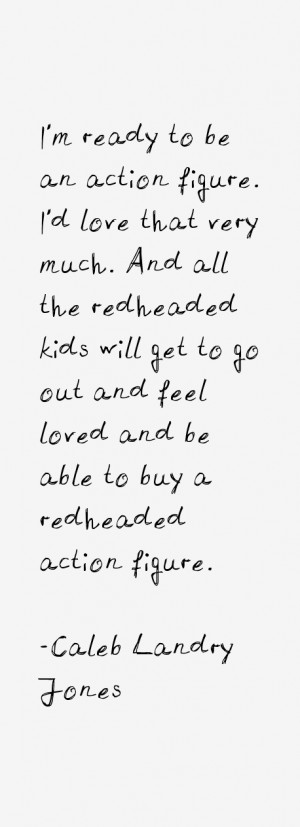 I'm ready to be
an action figure.
I'd love that very
much. And all
the redheaded
kids will get to go
out and feel
loved and be
able to buy a
redheaded
action figure.
-Caleb Landry
Jones